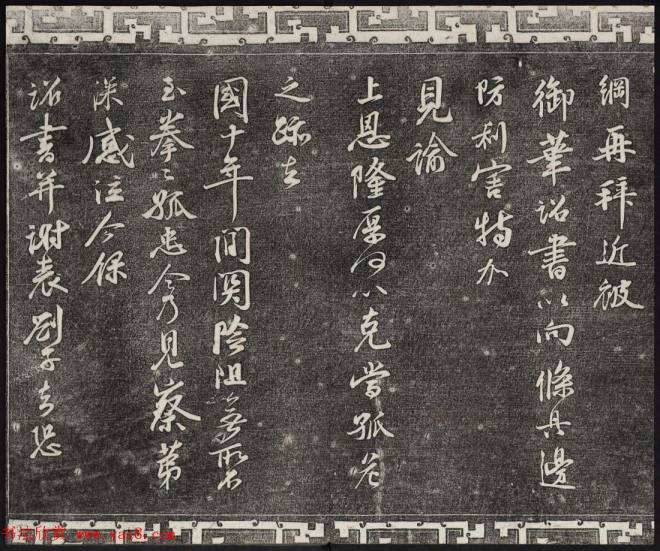 綱再拜近被
御筆詔書以向條具邊
防利害特加
見諭
上恩隆厚何以克當孤危
之跡去
國十年間関險阻無所不
至拳〻孤忠今乃見察第
深感泣今保
詔書并謝表劄子去恐
书法欣赏 www.yac8.com